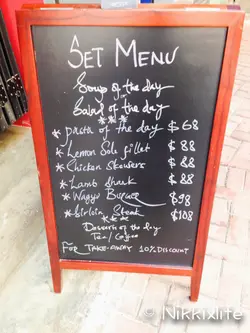 SET MENU
Soup of the day
Salad of the day
***
* Pasta of the day $68
* Lemon Sole fillet $88
* Chicken Skewers $88
* Lamb Shank $88
* Wagyu Burger $98
* Sirloin Steak $108
***
Dessert of the day
Tea / Coffee
FOR TAKE-AWAY 10% DISCOUNT
© Nikkixlife